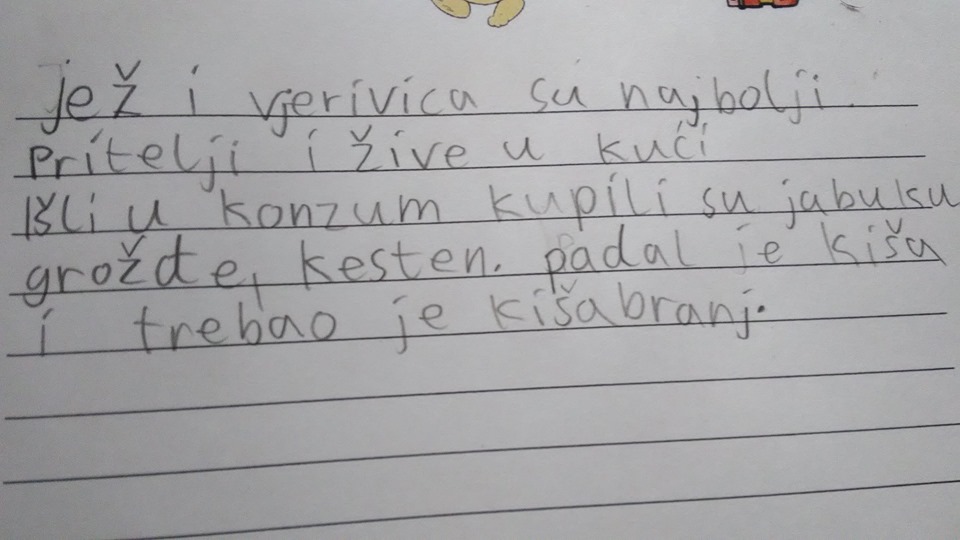 jež i vjerivica su najbolji.
Pritelji i žive u kući
Išli u konzum kupili su jabuku
grožde, kesten. padal je kiša
i trebao je kišabranj.